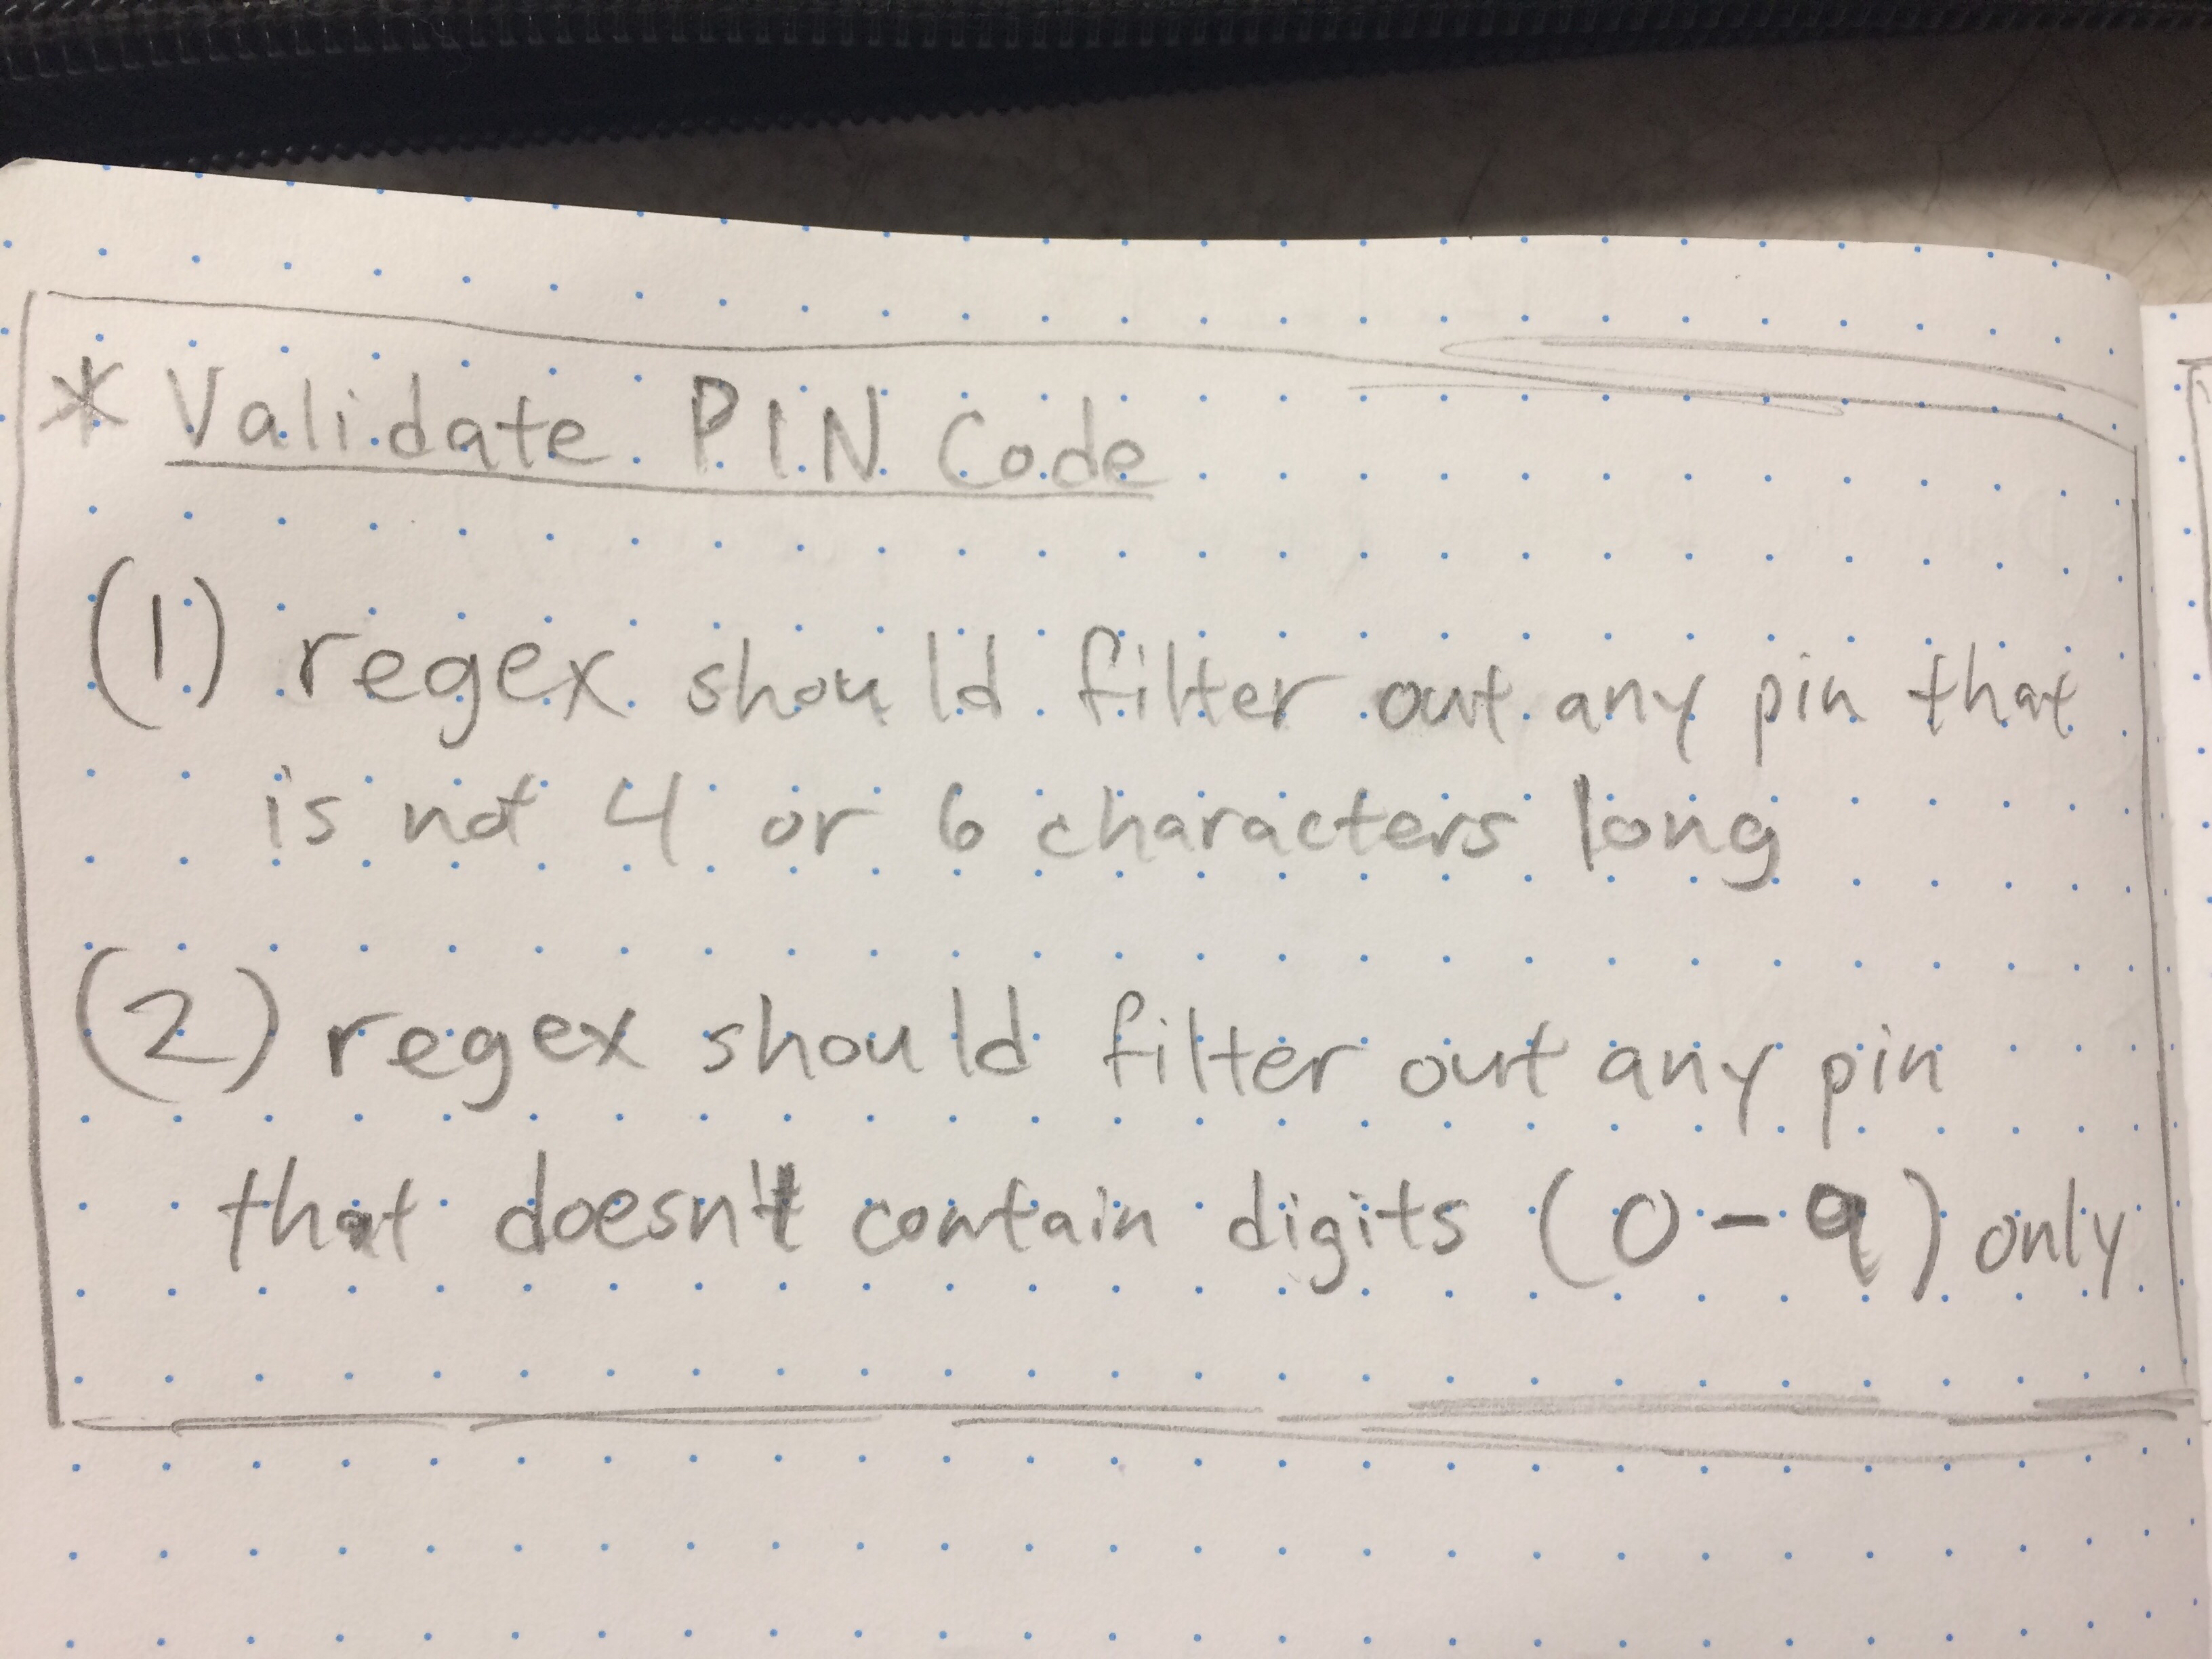 * Validate PIN Code
(1) regex should filter out any pin that
is not 4 or 6 characters long
(2) regex should filter out any pin
that doesn't contain digits (0-9) only